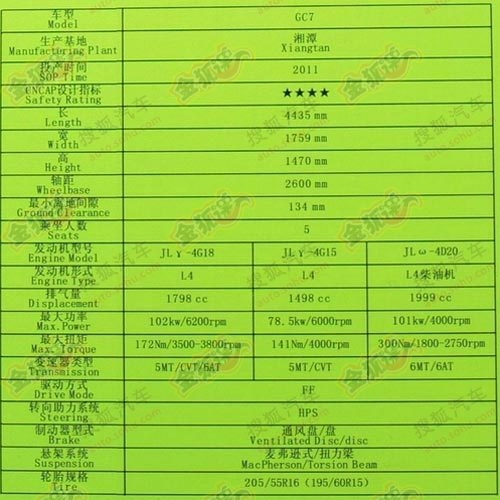 车型 GC7
Model
生产基地 湘潭
Manufactoring Plant Xiangtan
投产时间 2011
SOP Time
CNCAP设计指标 ★★★★
Safety Rating
长 4435 mm
Length
宽 1759 mm
Width
高 1470 mm
Height
轴距 2600 mm
Wheelbase
最小离地间隙 134 mm
Ground Clearance
乘坐人数 5
Seats
发动机型号 JLγ-4G18 JLγ-4G15 JLω-4D20
Engine Model
发动机形式 L4 L4 L4柴油机
Engine Type
排气量 1798 cc 1498 cc 1999 cc
Displacement
最大功率 102kw/6200rpm 78.5kw/6000rpm 101kw/4000rpm
Max.Power
最大扭矩 172Nm/3500-3800rpm 141Nm/4000rpm 300Nm/1800-2750rpm
Max. Torque
变速器类型 5MT/CVT/6AT 5MT/CVT 6MT/6AT
Transmission
驱动方式 FF
Drive Mode
转向助力系统 HPS
Steering
制动器型式 通风盘/盘
Brake Ventilated Disc/disc
悬架系统 麦弗逊式/扭力梁
Suspension MacPherson/Torsion Beam
轮胎规格 205/55R16（195/60R15）
Tire
搜狐汽车
auto.sohu.com